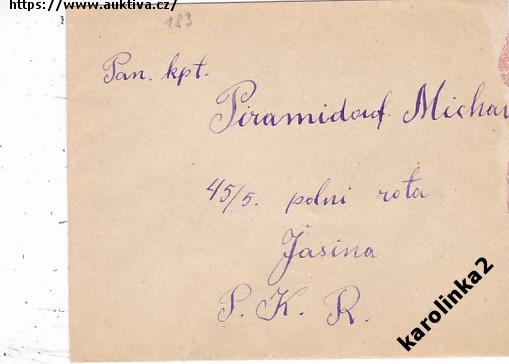 https://www.auktiva.cz/
183
Pan. kpt.
Piramidouf. Michal
45/5. polni rota
Jasina
P. K. R.
karolinka2